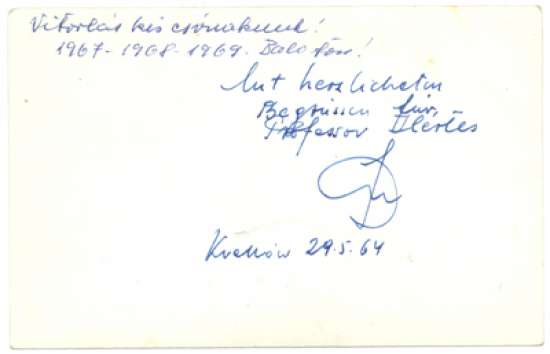 Vitorlás kis csónakunk!
1967-1968-1969. Balaton!
Mit herzlichsten
Begrüssen für
Professor Mertes
Kraków 29.5.64